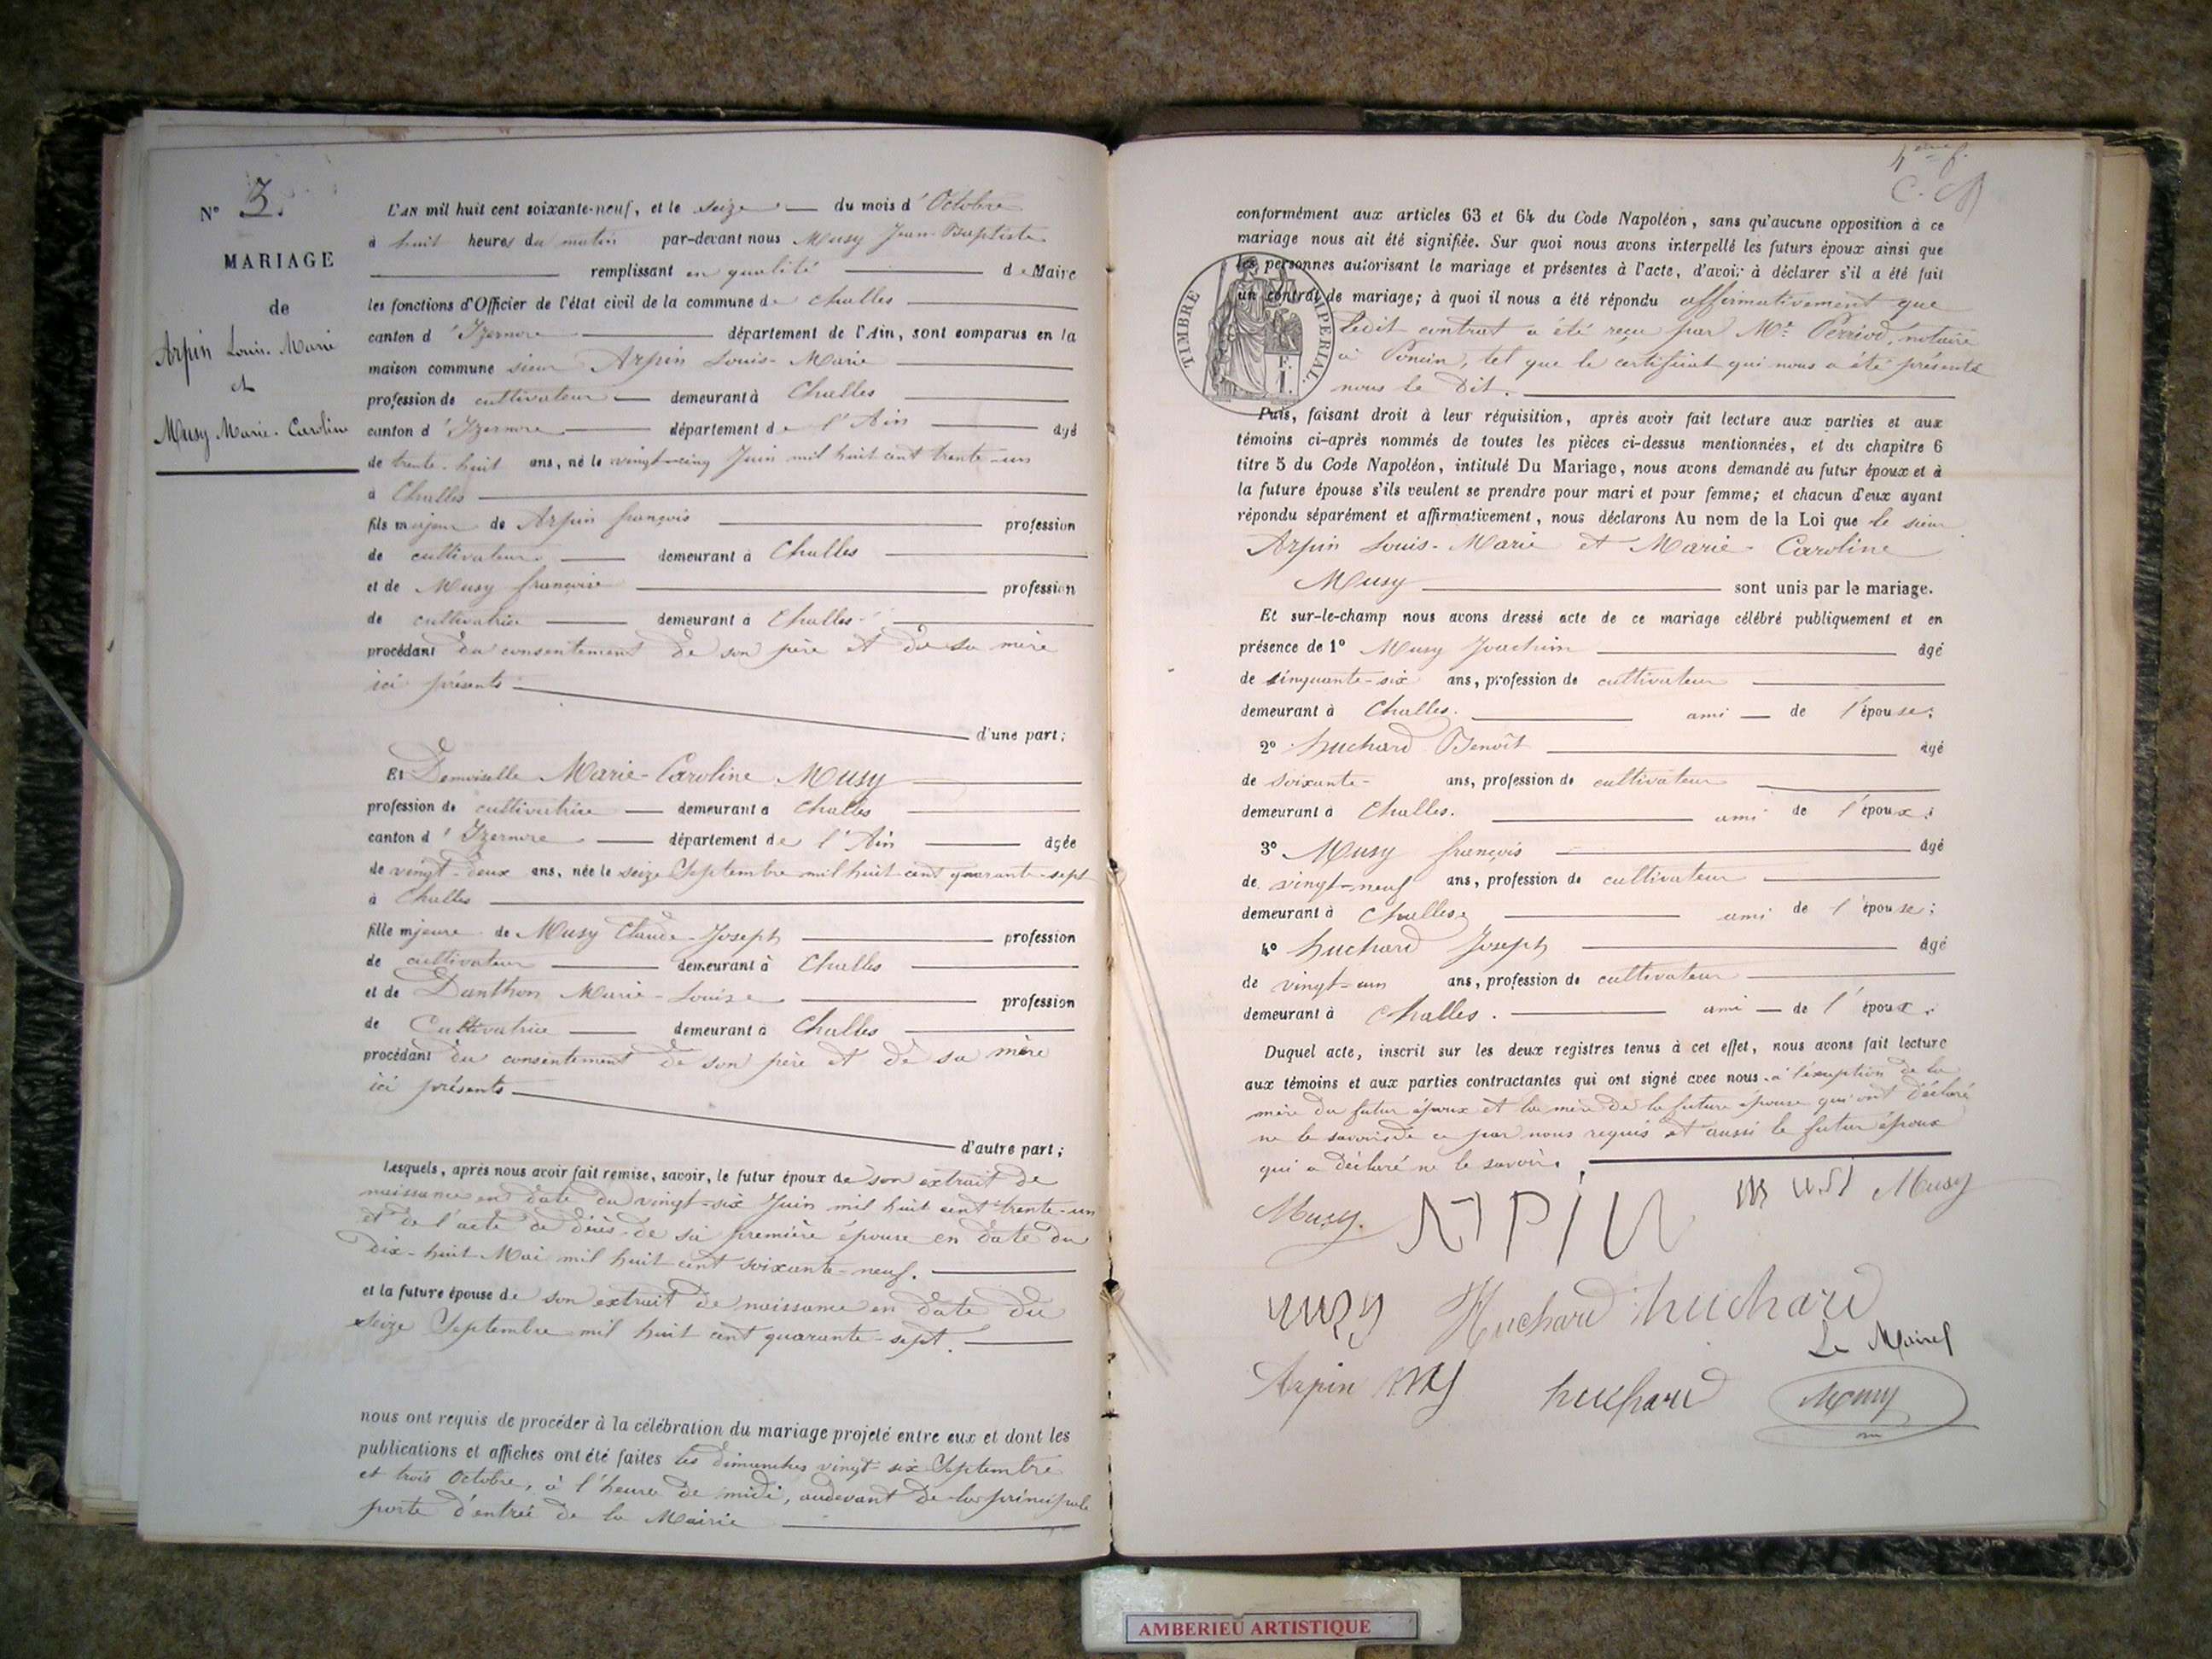 N° 3.
MARIAGE
de
Arpin Louis-Marie
et
Musy Marie-Caroline
L'AN mil huit cent soixante-neuf, et le seize du mois d'Octobre
à huit heures du matin par-devant nous Musy Jean-Baptiste
remplissant en qualité de Maire
les fonctions d'Officier de l'état civil de la commune de Challes
canton d'Izernore département de l'Ain, sont comparus en la
maison commune sieur Arpin Louis-Marie
profession de cultivateur demeurant à Challes
canton d'Izernore département de l'Ain âgé
de trente-huit ans, né le vingt-cinq Juin mil huit cent trente-un
à Challes
fils majeur de Arpin françois profession
de cultivateur demeurant à Challes
et de Musy françoise profession
de cultivatrice demeurant à Challes
procédant du consentement de son père et de sa mère
ici présents
d'une part;
Et Demoiselle Marie-Caroline Musy
profession de cultivatrice demeurant à Challes
canton d'Izernore département de l'Ain âgée
de vingt-deux ans, née le seize Septembre mil huit cent quarante-sept
à Challes
fille majeure de Musy Claude-Joseph profession
de cultivateur demeurant à Challes
et de Danthon Marie-Louise profession
de Cultivatrice demeurant à Challes
procédant du consentement de son père et de sa mère
ici présents
d'autre part;
Lesquels, après nous avoir fait remise, savoir, le futur époux de son extrait de
naissance en date du vingt-six Juin mil huit cent trente-un
et de l'acte de décès de sa première épouse en date du
Dix-huit Mai mil huit cent soixante-neuf.
et la future épouse de son extrait de naissance en date du
seize Septembre mil huit cent quarante-sept.
nous ont requis de procéder à la célébration du mariage projeté entre eux et dont les
publications et affiches ont été faites les dimanches vingt-six Septembre
et trois Octobre, à l'heure de midi, audevant de la principale
porte d'entrée de la Mairie
conformément aux articles 63 et 64 du Code Napoléon, sans qu'aucune opposition à ce
mariage nous ait été signifiée. Sur quoi nous avons interpellé les futurs époux ainsi que
les personnes autorisant le mariage et présentes à l'acte, d'avoir à déclarer s'il a été fait
un contrat de mariage; à quoi il nous a été répondu affirmativement que
ledit contrat a été reçu par Mr Perriod, notaire
à Poncin, tel que le certificat qui nous a été présenté
nous le dit.
TIMBRE IMPERIAL.
F.
1.
Puis, faisant droit à leur réquisition, après avoir fait lecture aux parties et aux
témoins ci-après nommés de toutes les pièces ci-dessus mentionnées, et du chapitre 6
titre 5 du Code Napoléon, intitulé Du Mariage, nous avons demandé au futur époux et à
la future épouse s'ils veulent se prendre pour mari et pour femme; et chacun d'eux ayant
répondu séparément et affirmativement, nous déclarons Au nom de la Loi que le sieur
Arpin Louis-Marie et Marie-Caroline
Musy sont unis par le mariage.
Et sur-le-champ nous avons dressé acte de ce mariage célébré publiquement et en
présence de 1° Musy Joachim âgé
de cinquante-six ans, profession de cultivateur
demeurant à Challes. ami de l'épouse;
2° huchard Benoît âgé
de soixante- ans, profession de cultivateur
demeurant à Challes. ami de l'époux;
3° Musy françois âgé
de vingt-neuf ans, profession de cultivateur
demeurant à Challes ami de l'épouse;
4° huchard Joseph âgé
de vingt-un ans, profession de cultivateur
demeurant à Challes. ami de l'époux.
Duquel acte, inscrit sur les deux registres tenus à cet effet, nous avons fait lecture
aux témoins et aux parties contractantes qui ont signé avec nous à l'exeption de la
mère du futur époux et la mère de la future épouse qui ont déclaré
ne le savoir de ce par nous requis et aussi le futur époux
qui a déclaré ne le savoir.
Musy. Musy
Huchard huchard
Le Maire
Arpin huchard Musy
AMBERIEU ARTISTIQUE